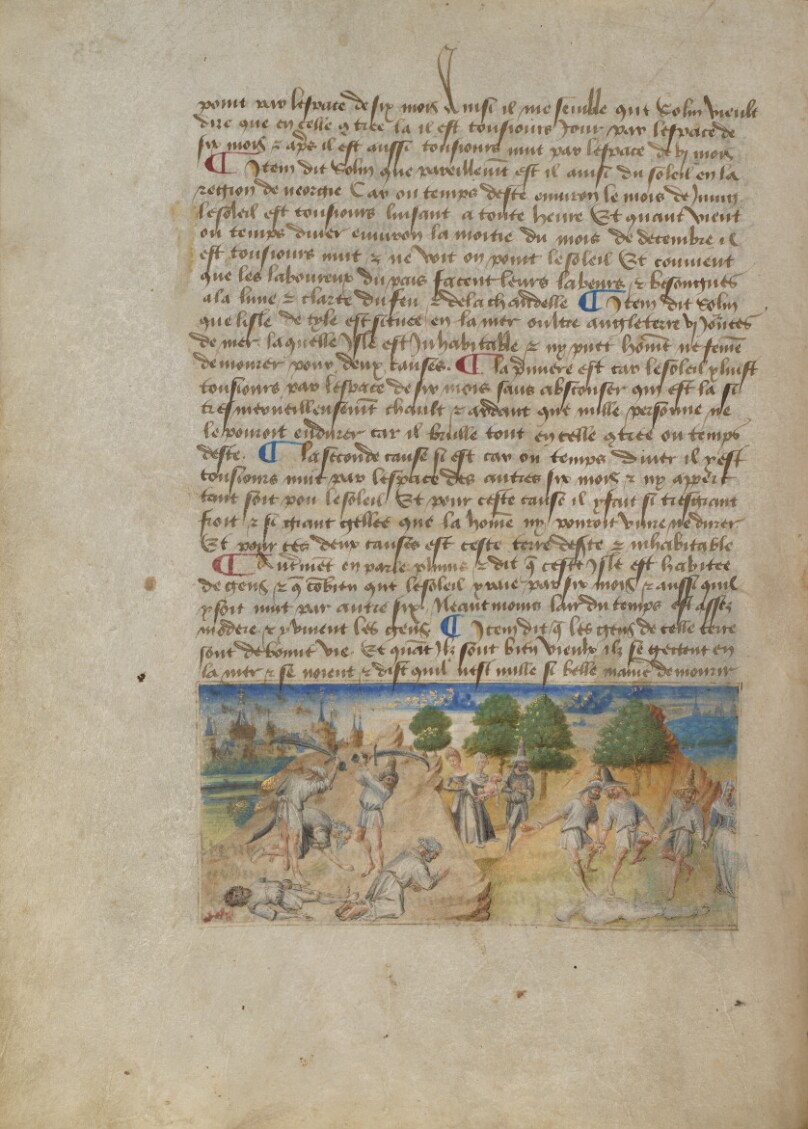 point par lespace de six mois Ainsi il me semble que Solin vieult
dire que en celle gtree la il est tousiours Jour par lespace de
six mois & apres il est aussi tousiours nuit par lespace de vj mois
¶ Item dit Solin que pareillemt est il ainsi du soleil en la
region de neorgie Car ou temps deste enuiron le mois de Juing
le soleil est tousiours luisant a toute heure Et quant vient
ou temps diuer enuiron la moitie du mois de decembre il
est tousiours nuit & ne voit on point le soleil Et conuient
que les laboureux du pais facent leurs labeurs & besongnes
a la lune & clarte du feu & de la chandelle ¶ Item dit Solin
que lisle de tyle est situee en la mer oultre angleterre vj Jornees
de mer laquelle Isle est Inhabitable & ny puet home ne feme
demourer pour deux causes. ¶ la premiere est car le soleil y luist
tousiours par lespace de six mois sans absconser qui est la si
tresmerueilleusemt chault & ardant que nulle personne ne
le pouroit endurer car il brulle tout en celle gtree ou temps
deste. ¶ la seconde cause si est car ou temps diuer il y est
tousiours nuit par lespace des autres six mois & ny apert
tant soit pou le soleil Et pour ceste cause il y fait si tresgrant
froit & si grant gellee que la home ny pouroit viure ne durer
Et pour ces deux causes est ceste terre deste & inhabitable
¶ Autremet en parle plinius & dit q ceste Isle est habitee
de gens & q cobien que le soleil y raie par six mois & aussi quil
y soit nuit par autre six Neantmoins lair du temps est assez
modere & y viuent les gens ¶ Item dit q les gens de celle terre
sont de bonne vie. Et quat Ilz sont bien vieulx ilz se gettent en
la mer & se noient & dist quil nest nulle si belle maniere de mourir